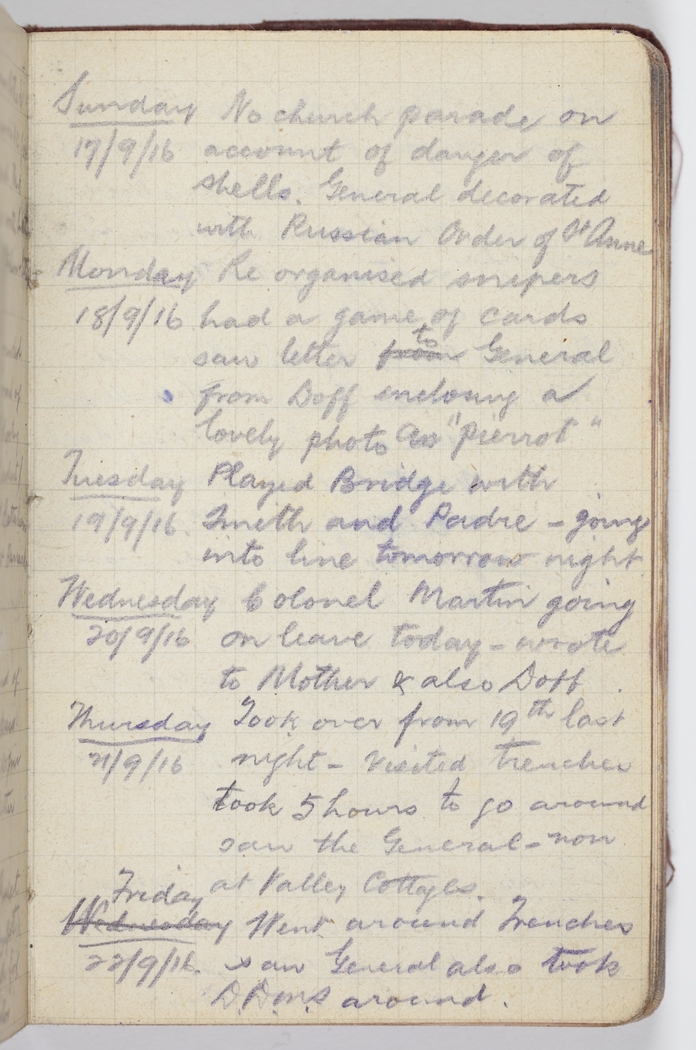 Sunday No church parade on
17/9/16 account of danger of
shells. General decorated
with Russian Order of St Anne
Monday Re organised snipers
18/9/16 had a game of cards
saw letter from to General
from Doff enclosing a
lovely photo as "Pierrot"
Tuesday Played Bridge with
19/9/16. Smith and Padre - going
into line tomorrow night
Wednesday Colonel Martin going
20/9/16 on leave today - wrote
to Mother & also Doff.
Thursday Took over from 19th last
21/9/16 night - visited trenches
took 5 hours to go around
saw the General - now
at Valley Cottages.
Friday
Wednesday Went around Trenches
22/9/16. saw General also took
around.